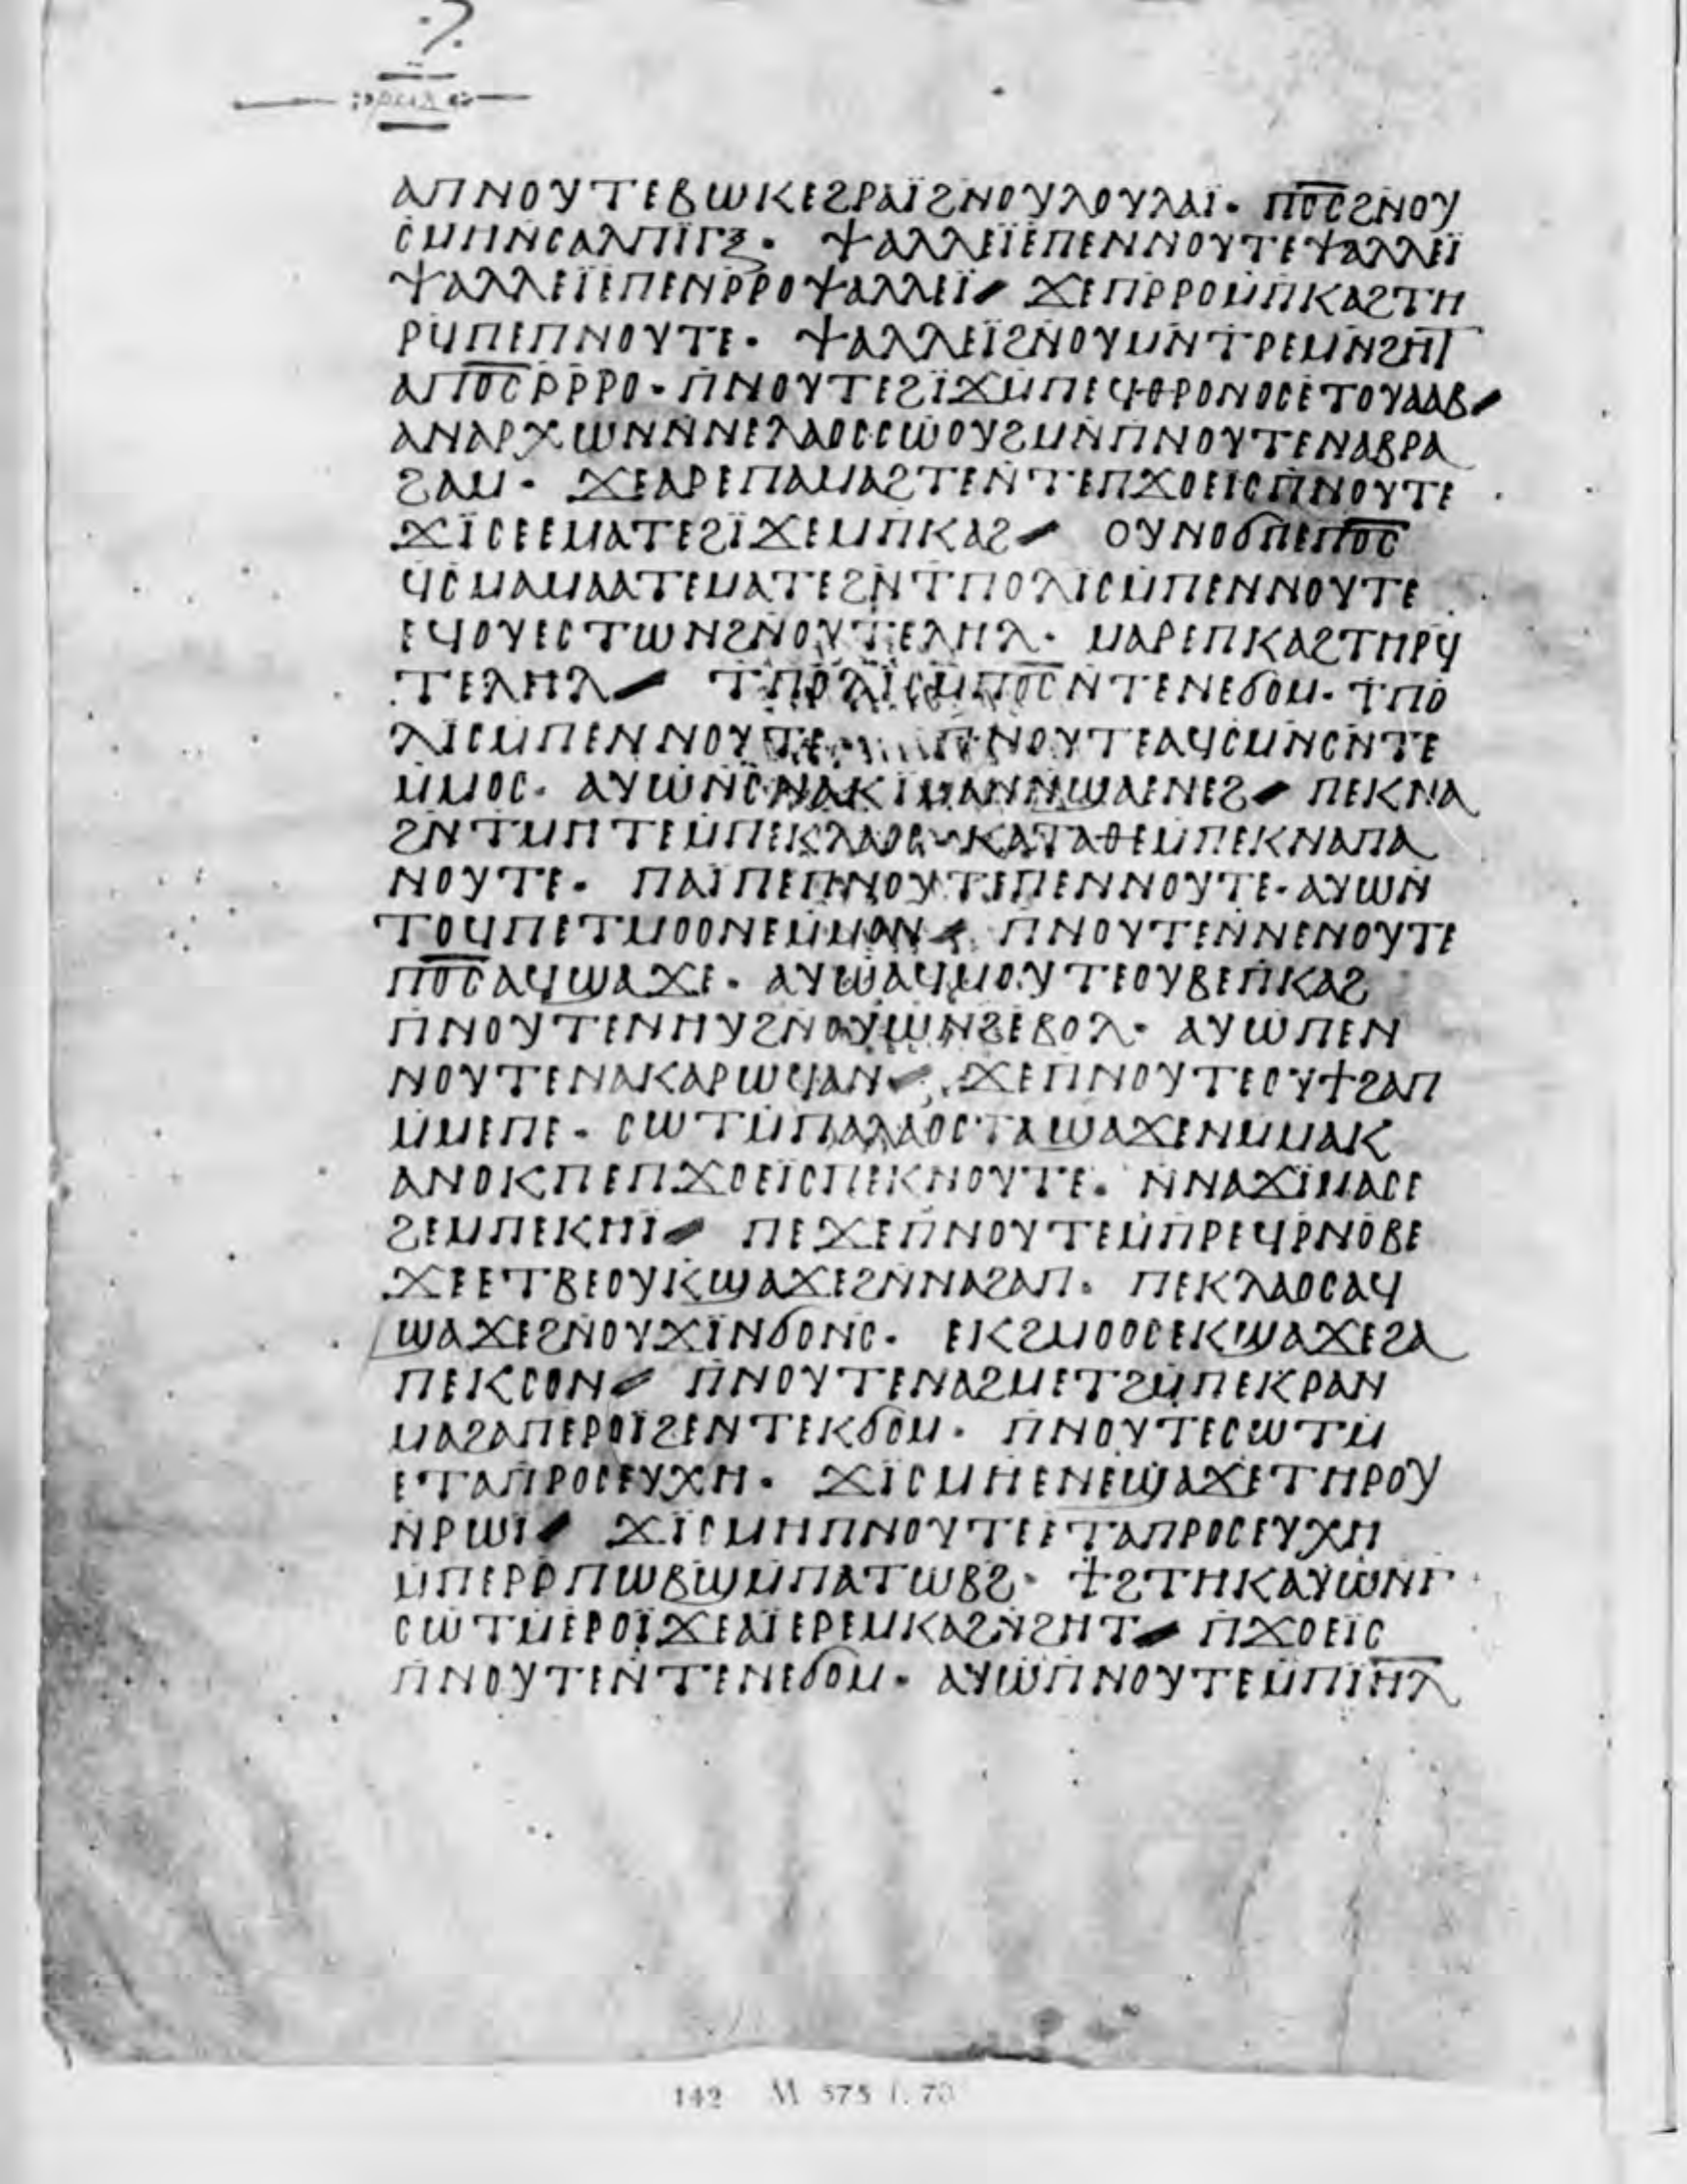 ⲁⲡⲛⲟⲩⲧⲉⲃⲱⲕⲉϩⲣⲁⲓ̈ϩⲛⲟⲩⲗⲟⲩⲗⲁⲓ̈· ⲡ̅ⲟ̅ⲥ̅ϩⲛⲟⲩ
ⲥⲙⲏⲛⲥⲁⲗⲡⲓⲅⲝ· ⲯⲁⲗⲗⲉⲓ̈ⲉⲡⲉⲛⲛⲟⲩⲧⲉⲯⲁⲗⲗⲉⲓ̈
ⲯⲁⲗⲗⲉⲓ̈ⲉⲡⲉⲛⲣ̇ⲣⲟⲯⲁⲗⲗⲉⲓ̈⸝ ϫⲉⲡⲣ̇ⲣⲟⲙ̇ⲡⲕⲁϩⲧⲏ
ⲣϥⲡⲉⲡⲛⲟⲩⲧⲉ· ⲯⲁⲗⲗⲉⲓ̈ϩⲛ̇ⲟⲩⲙⲛ̇ⲧⲣⲉⲙⲛ̇ϩⲏⲧ
ⲁⲡ̅ⲟ̅ⲥ̅ⲣ̇ⲣ̇ⲣⲟ· ⲡ̇ⲛⲟⲩⲧⲉϩⲓ̈ϫⲙ̇ⲡⲉϥⲑⲣⲟⲛⲟⲥⲉⲧⲟⲩⲁⲁⲃ⸝
ⲁⲛⲁⲣⲭⲱⲛⲛ̇ⲛⲉⲗⲁⲟⲥⲥⲱⲟⲩϩⲙⲛ̇ⲡⲛⲟⲩⲧⲉⲛⲁⲃⲣⲁ
ϩⲁⲙ· ϫⲉⲁⲣⲉⲡⲁⲙⲁϩⲧⲉⲛ̇ⲧⲉⲡϫⲟⲉⲓⲥⲡ̇ⲛⲟⲩⲧⲉ
ϫⲓ̈ⲥⲉⲉⲙⲁⲧⲉϩⲓ̈ϫⲉⲙⲡⲕⲁϩ⸝ ⲟⲩⲛⲟϭⲡⲉⲡ̅ⲟ̅ⲥ̅
ϥⲥⲙⲁⲙⲁⲁⲧⲉⲙⲁⲧⲉϩⲛ̇ⲧⲡⲟⲗⲓⲥⲙ̇ⲡⲉⲛⲛⲟⲩⲧⲉ
ⲉϥⲟⲩⲉⲥⲧⲱⲛϩⲛ̇ⲟⲩⲧⲉⲗⲏⲗ· ⲙⲁⲣⲉⲡⲕⲁϩⲧⲏⲣϥ
ⲧⲉⲗⲏⲗ⸝ ⲧⲡⲟⲗⲓⲥⲙ̇ⲡ̅ⲟ̅ⲥ̅ⲛ̇ⲧⲉⲛⲉϭⲟⲙ· ⲧⲡⲟ
ⲗⲓⲥⲙ̇ⲡⲉⲛⲛⲟⲩⲧⲉ ⲡ̇ⲛⲟⲩⲧⲉⲁϥⲥⲙⲛ̇ⲥⲛ̇ⲧⲉ
ⲙ̇ⲙⲟⲥ· ⲁⲩⲱⲛ̇ⲥⲛⲁⲕⲓⲙⲁⲛⲛ̇ϣⲁⲉⲛⲉϩ⸝ ⲡⲉⲕⲛⲁ
ϩⲛ̇ⲧⲙⲏⲧⲉⲙ̇ⲡⲉⲕⲗⲁⲟⲥ· ⲕⲁⲧⲁⲑⲉⲙ̇ⲡⲉⲕⲛⲁⲡⲁ
ⲛⲟⲩⲧⲉ· ⲡⲁⲓ̈ⲡⲉⲡⲛⲟⲩⲧⲉⲡⲉⲛⲛⲟⲩⲧⲉ· ⲁⲩⲱⲛ̇
ⲧⲟϥⲡⲉⲧⲙⲟⲟⲛⲉⲙ̇ⲙⲟⲛ⸝ ⲡⲛⲟⲩⲧⲉⲛ̇ⲛⲉⲛⲟⲩⲧⲉ
ⲡ̅ⲟ̅ⲥ̅ⲁϥϣⲁϫⲉ· ⲁⲩⲱⲁϥⲙⲟⲩⲧⲉⲟⲩⲃⲉⲡ̇ⲕⲁϩ
ⲡ̇ⲛⲟⲩⲧⲉⲛⲏⲩϩⲛ̇ⲟⲩⲱⲛϩⲉⲃⲟⲗ· ⲁⲩⲱⲡⲉⲛ
ⲛⲟⲩⲧⲉⲛⲁⲕⲁⲣⲱϥⲁⲛ⸝ ϫⲉⲡⲛⲟⲩⲧⲉⲟⲩϯϩⲁⲡ
ⲙ̇ⲙⲉⲡⲉ· ⲥⲱⲧⲙ̇ⲡⲁⲗⲁⲟⲥⲧⲁϣⲁϫⲉⲛⲙ̇ⲙⲁⲕ
ⲁⲛⲟⲕⲡⲉⲡϫⲟⲉⲓ̈ⲥⲡⲉⲕⲛⲟⲩⲧⲉ· ⲛ̇ⲛⲁϫⲓⲙⲁⲥⲉ
ϩⲉⲙⲡⲉⲕⲏⲓ̈⸝ ⲡⲉϫⲉⲡ̇ⲛⲟⲩⲧⲉⲙ̇ⲡⲣⲉϥⲣ̇ⲛⲟⲃⲉ
ϫⲉⲉⲧⲃⲉⲟⲩⲕ̇ϣⲁϫⲉϩⲛ̇ⲛⲁϩⲁⲡ· ⲡⲉⲕⲗⲁⲟⲥⲁϥ
ϣⲁϫⲉϩⲛ̇ⲟⲩϫⲓ̈ⲛϭⲟⲛⲥ· ⲉⲕϩⲙⲟⲟⲥⲉⲕϣⲁϫⲉϩⲁ
ⲡⲉⲕⲥⲟⲛ⸝ ⲡ̇ⲛⲟⲩⲧⲉⲛⲁϩⲙⲉⲧϩⲙ̇ⲡⲉⲕⲣⲁⲛ
ⲙⲁϩⲁⲡⲉⲣⲟⲓ̈ϩⲉⲛⲧⲉⲕϭⲟⲙ· ⲡ̇ⲛⲟⲩⲧⲉⲥⲱⲧⲙ̇
ⲉⲧⲁⲡⲣⲟⲥⲉⲩⲭⲏ· ϫⲓ̈ⲥⲙⲏⲉⲛⲉϣⲁϫⲉⲧⲏⲣⲟⲩ
ⲛ̇ⲣⲱⲓ⸝ ϫⲓ̈ⲥⲙⲏⲡⲛⲟⲩⲧⲉⲉⲧⲁⲡⲣⲟⲥⲉⲩⲭⲏ
ⲙ̇ⲡⲉⲣⲣ̇ⲡⲱⲃϣⲙ̇ⲡⲁⲧⲱⲃϩ· ϯϩⲧⲏⲕⲁⲩⲱⲛⲅ
ⲥⲱⲧⲙ̇ⲉⲣⲟⲓ̈ϫⲉⲁⲓ̈ⲉⲣⲉⲙⲕⲁϩⲛ̇ϩⲏⲧ⸝ ⲡϫⲟⲉⲓ̈ⲥ
ⲡ̇ⲛⲟⲩⲧⲉⲛ̇ⲧⲉⲛⲉϭⲟⲙ· ⲁⲩⲱⲡ̇ⲛⲟⲩⲧⲉⲙ̇ⲡⲓ̅ⲏ̅ⲗ̅
142 M 575 f. 70